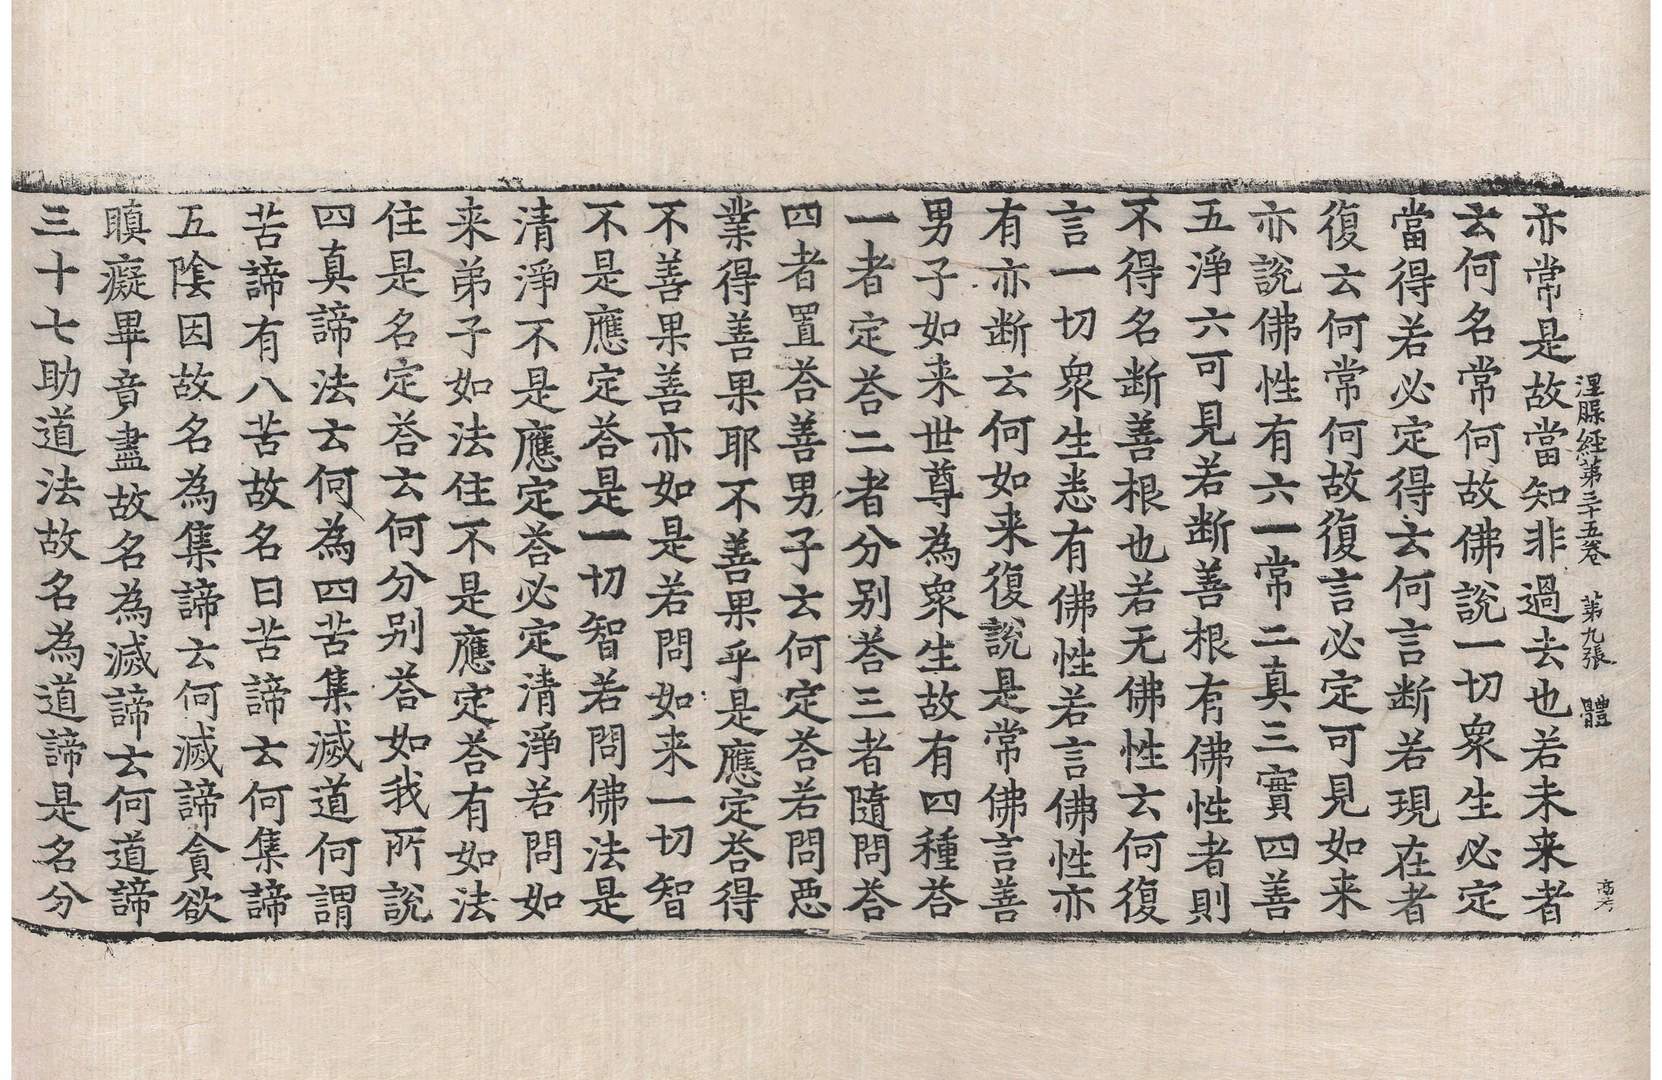 涅槃経第三十五卷　第九張　體
亦常是故當知非過去也若未来者
云何名常何故佛說一切衆生必定
當得若必定得云何言断若現在者
復云何常何故復言必定可見如来
亦說佛性有六一常二真三實四善
五淨六可見若断善根有佛性者則
不得名断善根也若无佛性云何復
言一切衆生悉有佛性若言佛性亦
有亦断云何如来復說是常佛言善
男子如来世尊為衆生故有四種荅
一者定荅二者分别荅三者隨問荅
四者置荅善男子云何定荅若問惡
業得善果耶不善果乎是應定荅得
不善果善亦如是若問如来一切智
不是應定荅是一切智若問佛法是
清淨不是應定荅必定清淨若問如
来弟子如法住不是應定荅有如法
住是名定荅云何分别荅如我所說
四真諦法云何為四苦集滅道何謂
苦諦有八苦故名曰苦諦云何集諦
五陰因故名為集諦云何滅諦貪欲
瞋癡畢竟盡故名為滅諦云何道諦
三十七助道法故名為道諦是名分